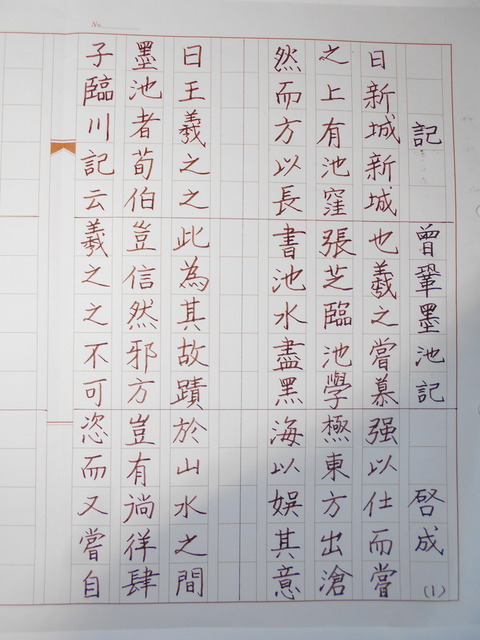 No.
記
曾鞏墨池記
啓成
(1)
日新城新城
之上有池窪
然而方以長
曰王羲之之
墨池者荀伯
子臨川記云
也羲之嘗慕
張芝臨池學
書池水盡黑
此為其故蹟
豈信然邪方
羲之之不可
强以仕而嘗
極東方出滄
海以娛其意
於山水之間
豈有徜徉肆
恣而又嘗自